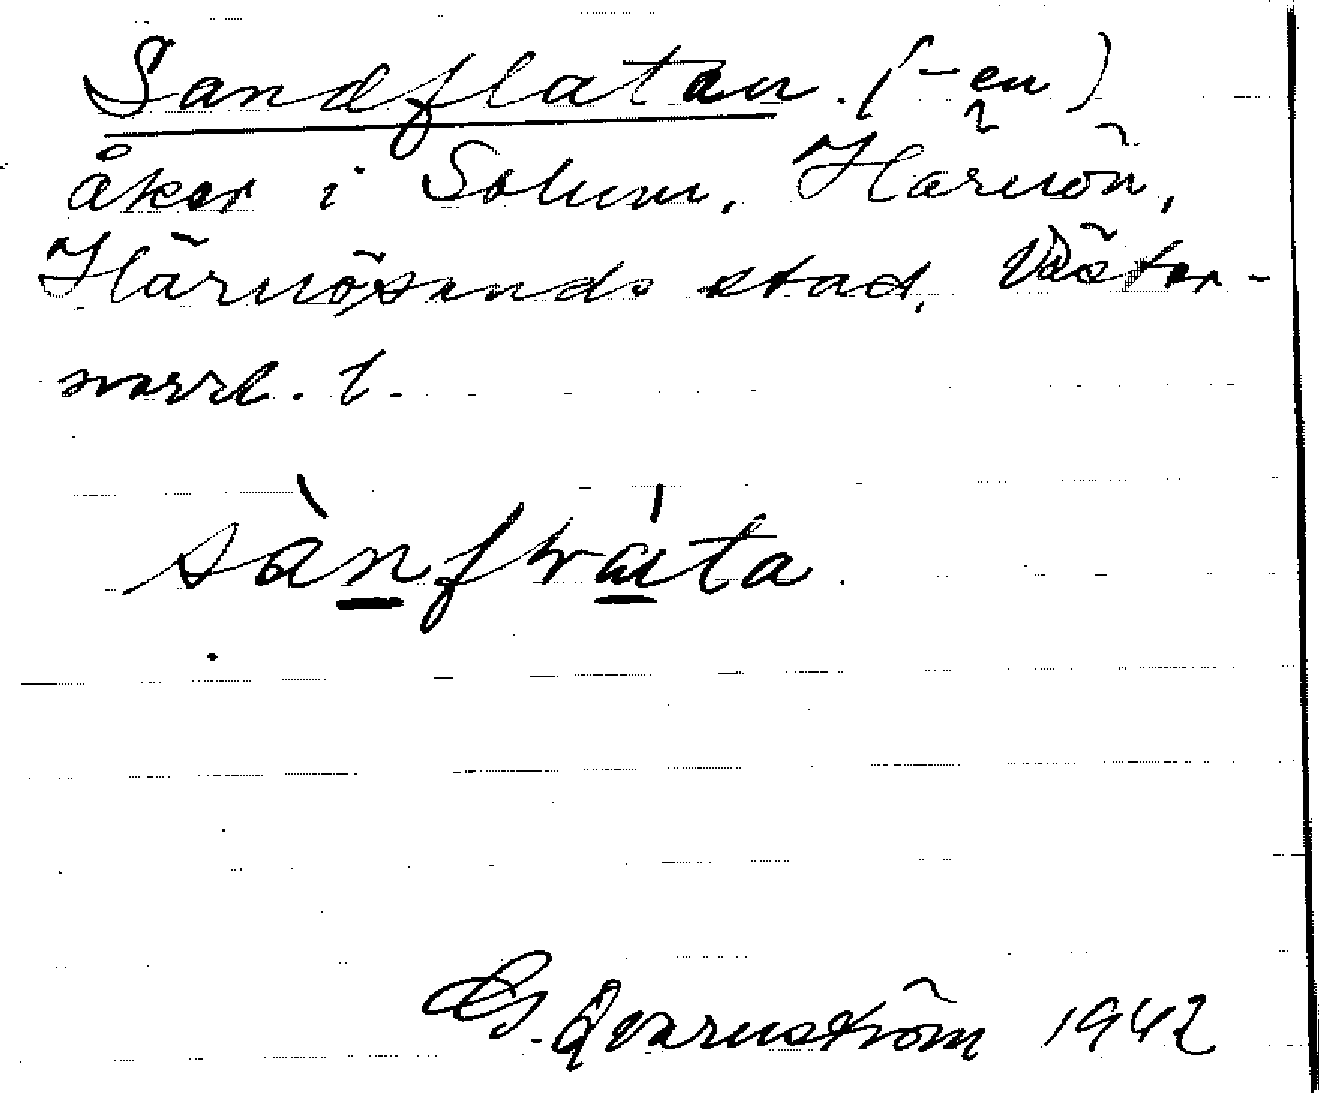 Sandflatan. (-en)
åker i Solum, Härnön,
Härnösands stad, Väster-
norrl. l.
sànfṿáita
G. Qvarnström 1942